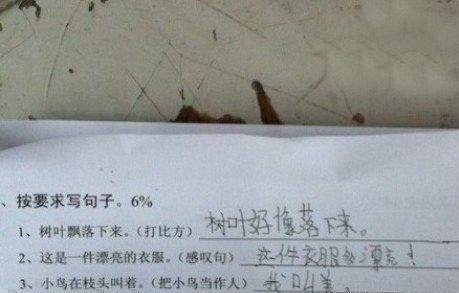 、按要求写句子。6%
1、树叶飘落下来。(打比方) 树叶好像落下来。
2、这是一件漂亮的衣服。(感叹句) 这件衣服多漂亮！
3、小鸟在枝头叫着。(把小鸟当作人) 我叫